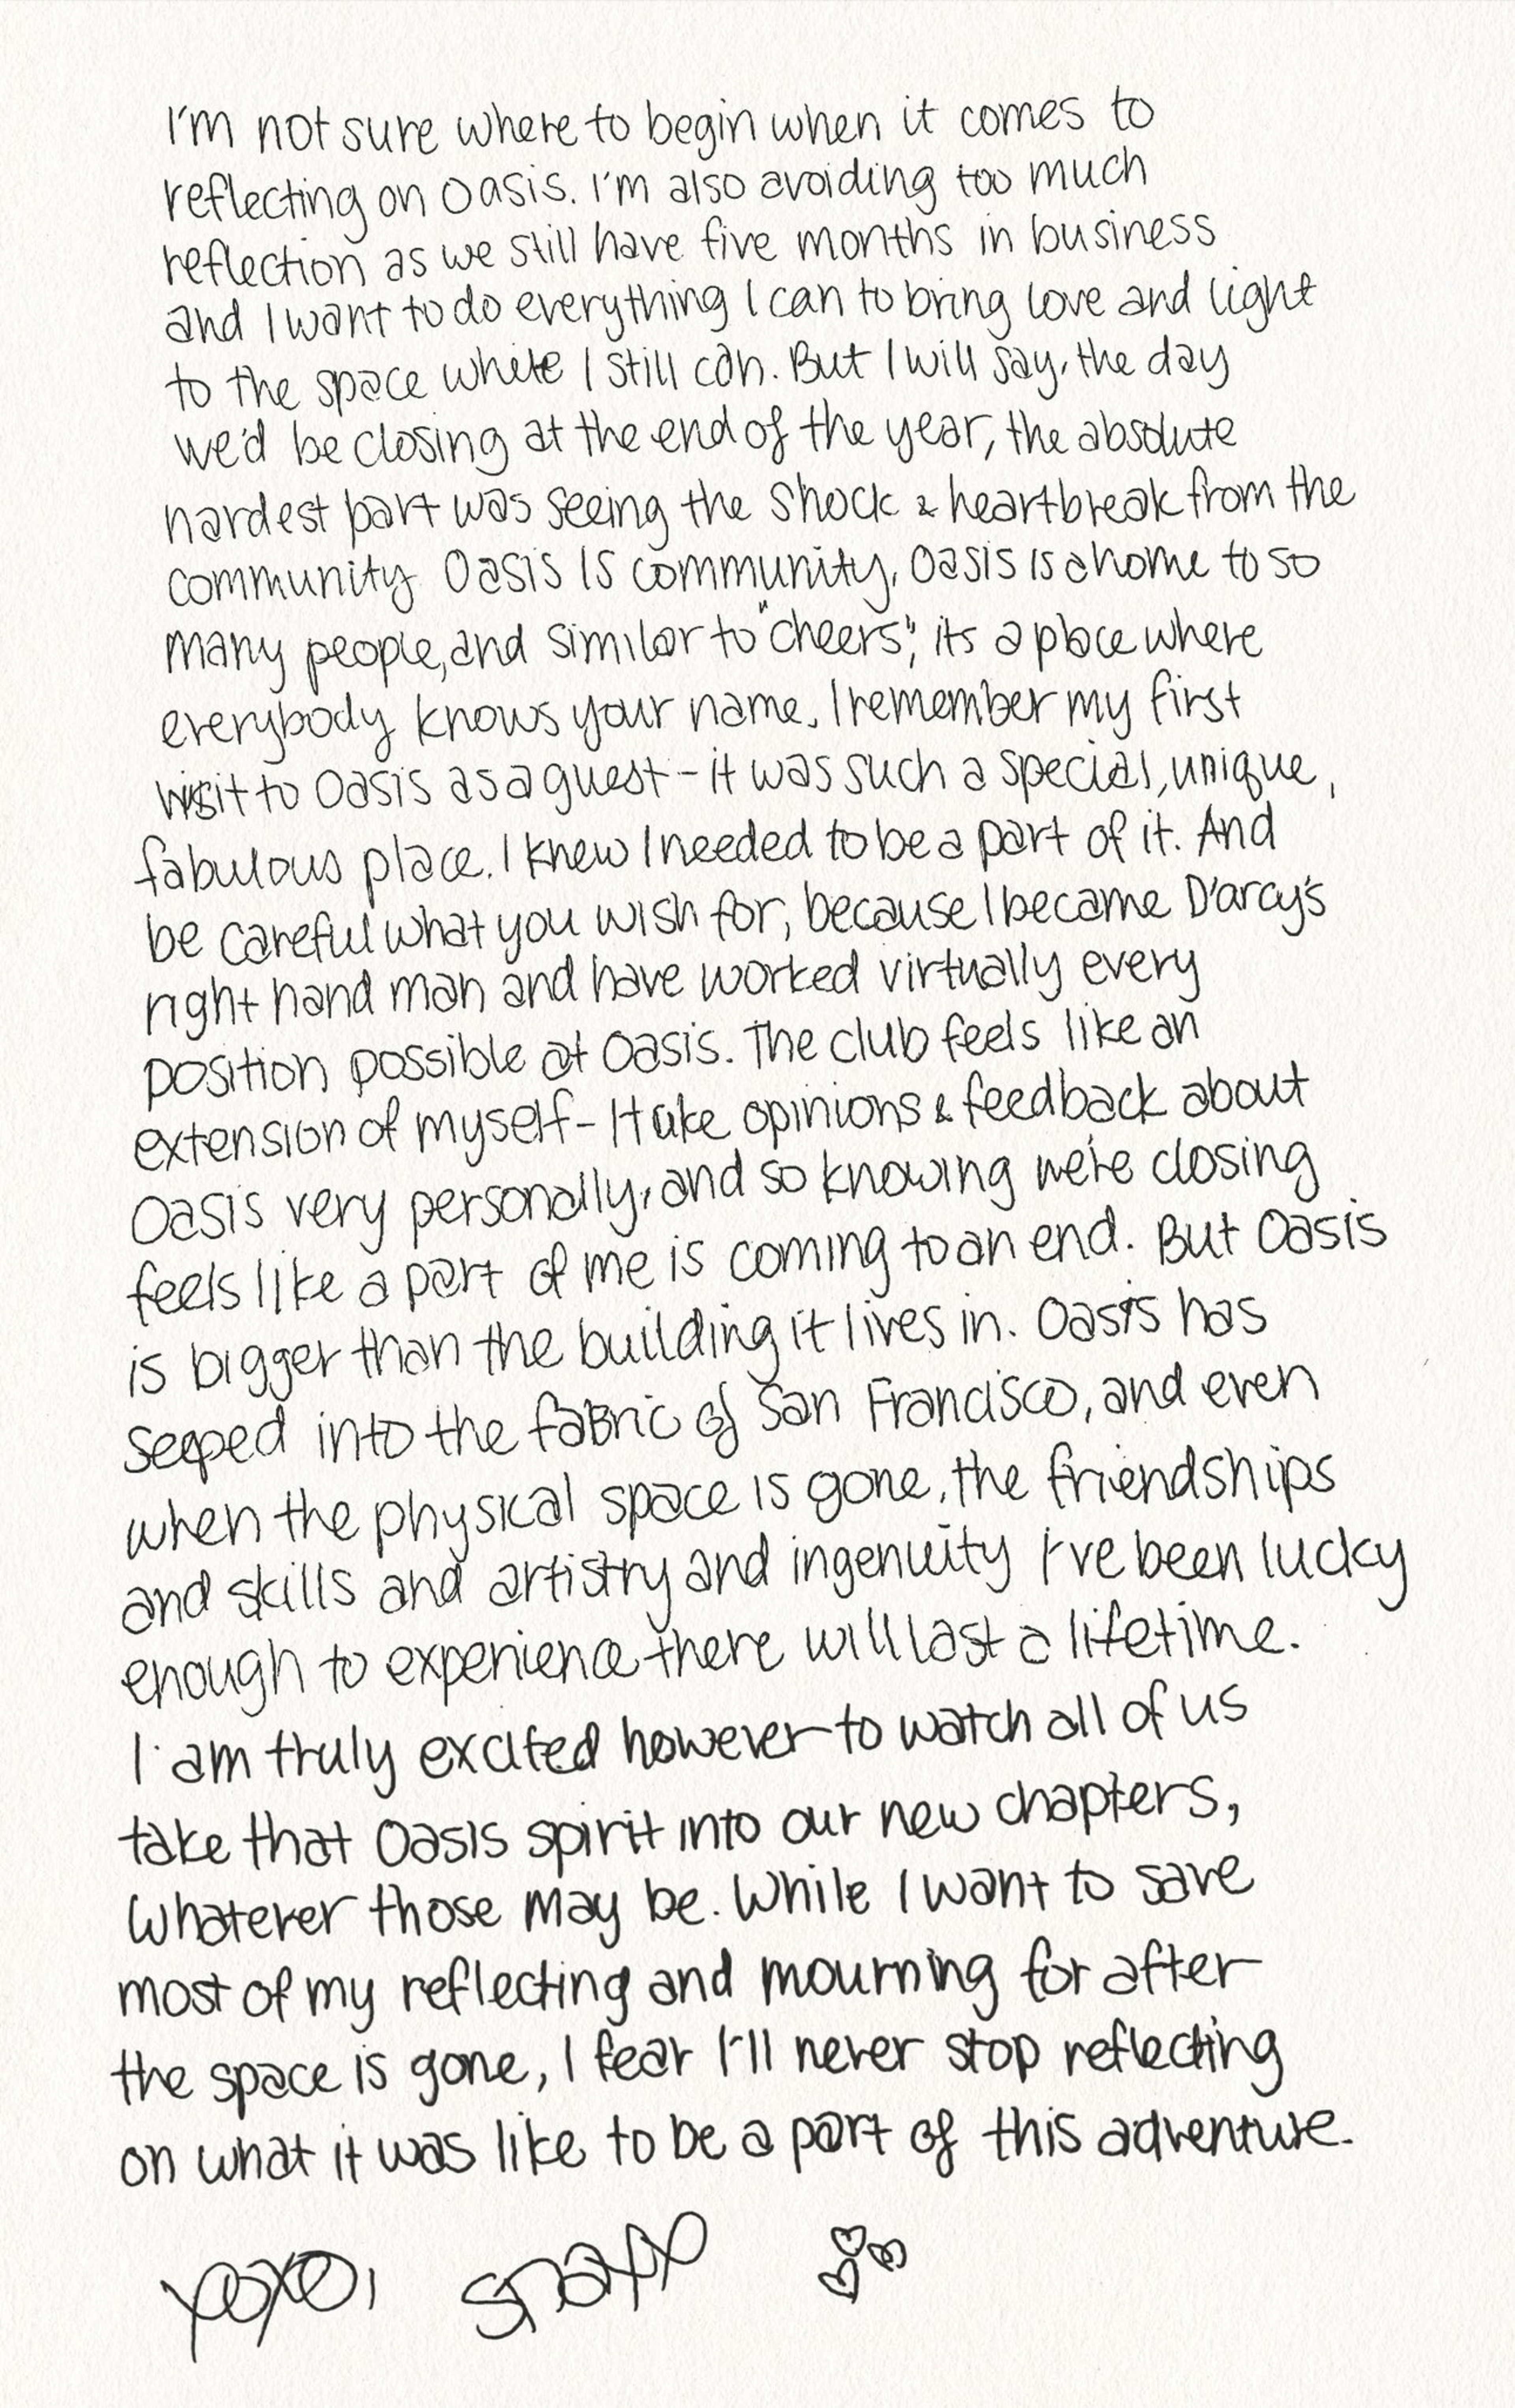 I'm not sure where to begin when it comes to
reflecting on Oasis. I'm also avoiding too much
reflection as we still have five months in business
and I want to do everything I can to bring love and light
to the space while I still can. But I will say, the day
we'd be closing at the end of the year, the absolute
hardest part was seeing the shock & heartbreak from the
community. Oasis IS community, Oasis is a home to so
many people, and similar to "cheers", its a place where
everybody knows your name. I remember my first
visit to Oasis as a guest - it was such a special, unique,
fabulous place. I knew I needed to be a part of it. And
be careful what you wish for, because I became D'arcy's
right hand man and have worked virtually every
position possible at Oasis. The club feels like an
extension of myself - I take opinions & feedback about
Oasis very personally, and so knowing we're closing
feels like a part of me is coming to an end. But Oasis
is bigger than the building it lives in. Oasis has
seeped into the fabric of San Francisco, and even
when the physical space is gone, the friendships
and skills and artistry and ingenuity I've been lucky
enough to experience there will last a lifetime.
I am truly excited however to watch all of us
take that Oasis spirit into our new chapters,
whatever those may be. While I want to save
most of my reflecting and mourning for after
the space is gone, I fear I'll never stop reflecting
on what it was like to be a part of this adventure.
xoxo, Snaxx